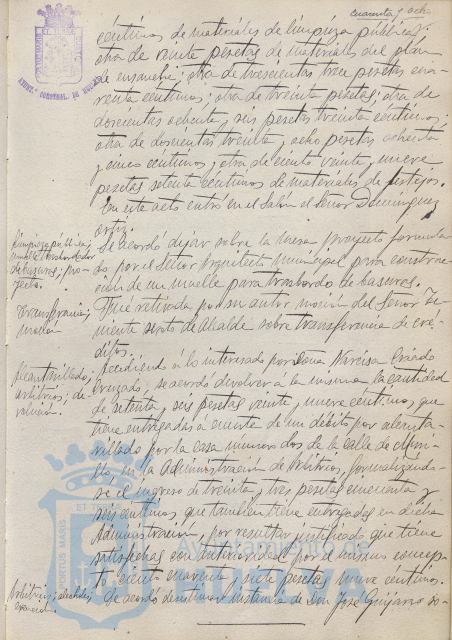 cuarenta y ocho
céntimos de materiales de limpieza pública;
otra de veinte pesetas de materiales del plan
de ensanche; otra de trescientas trece pesetas cua-
renta céntimos; otra de treinta pesetas; otra de
doscientas ochenta y seis pesetas treinta céntimos;
otra de doscientas treinta y ocho pesetas ochenta
y cinco céntimos, y otra de ciento veinte y nueve
pesetas setenta céntimos de materiales de festejos.
En este acto entró en el Salón el Señor Domínguez
Ortiz.
Limpieza pública;
muelle trasbordador
de basuras; pro-
yecto.
Se acordó dejar sobre la mesa proyecto formula-
do por el Señor Arquitecto municipal para construc-
ción de un muelle para trasbordo de basuras.
Transferencia;
moción
Fué retirada por su autor moción del Señor Te-
niente sexto de Alcalde sobre transferencia de cré-
ditos.
Alcantarillado;
arbitrios; de-
volución.
Accediendo á lo interesado por Doña Narcisa Criado
se acordó devolver á la misma la cantidad
de setenta y seis pesetas veinte y nueve céntimos, que
tiene entregadas á cuenta de un débito por alcanta-
rillado por la casa número dos de la calle de
en la Administración de Arbitrios, formalizándo-
se el ingreso de treinta y tres pesetas cincuenta y
seis céntimos que también tiene entregadas en dicha
Administración, por resultar justificado que tiene
satisfechas con anterioridad por el mismo concep-
to ciento cuarenta y siete pesetas nueve céntimos.
Arbitrios;
Se acordó desestimar instancia de Don José Guijarro so-
PORTUS MARIS